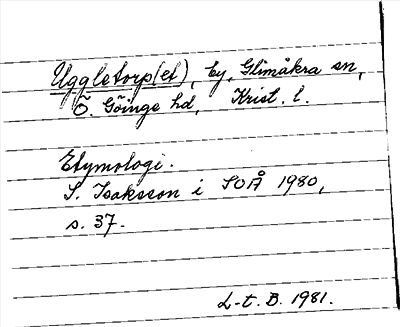 Uggletorp(et), by, Glimåkra sn,
Ö. Göinge hd, Krist. l.
Etymologi.
S. Isaksson i SOÅ 1980,
s. 37.
L-t. B. 1981.